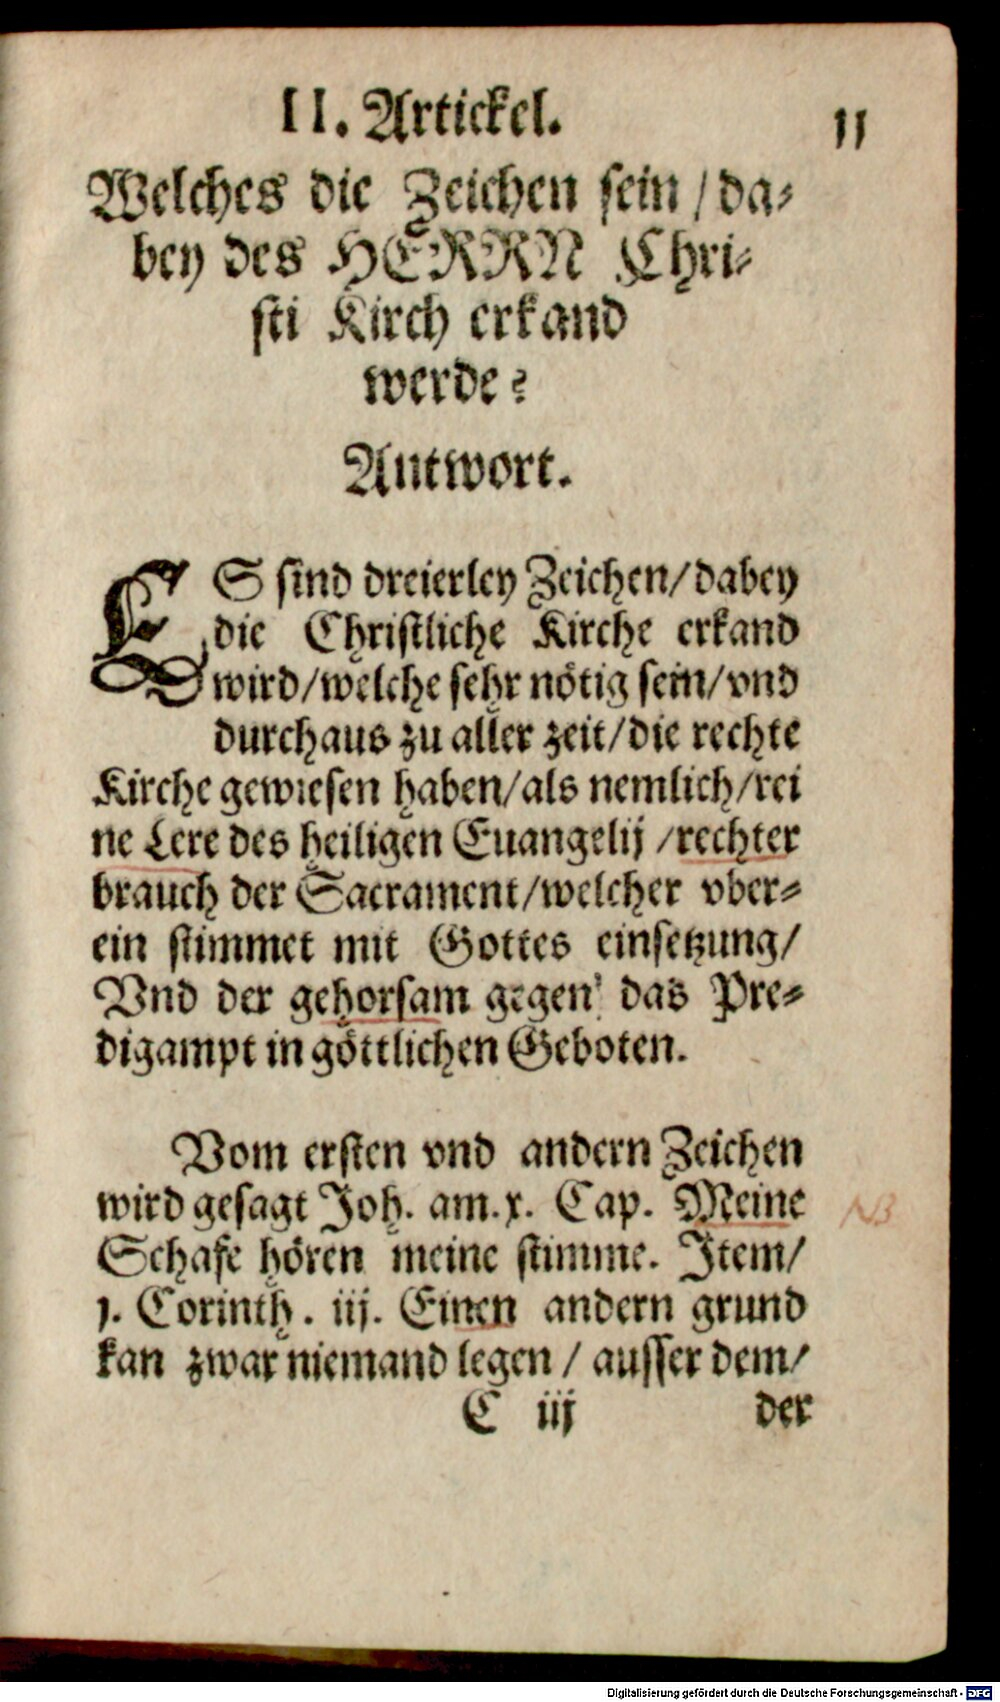 II. Artickel.
11
Welches die Zeichen sein / da⸗
bey des HERRN Chri⸗
sti Kirch erkand
werde?
Antwort.
ES sind dreierley Zeichen/dabey
die Christliche Kirche erkand
wird/welche sehr nötig sein/vnd
durchaus zu aller zeit/die rechte
Kirche gewiesen haben/als nemlich/rei
ne Lere des heiligen Euangelij /rechter
brauch der Sacrament/welcher vber⸗
ein stimmet mit Gottes einsetzung/
Vnd der gehorsam gegen das Pre⸗
digampt in göttlichen Geboten.
Vom ersten vnd andern Zeichen
wird gesagt Joh. am.x. Cap. Meine
NB
Schafe hören meine stimme. Item/
1. Corinth. iij. Einen andern grund
kan zwar niemand legen / ausser dem/
C iij der
Digitalisierung gefördert durch die Deutsche Forschungsgemeinschaft - DFG